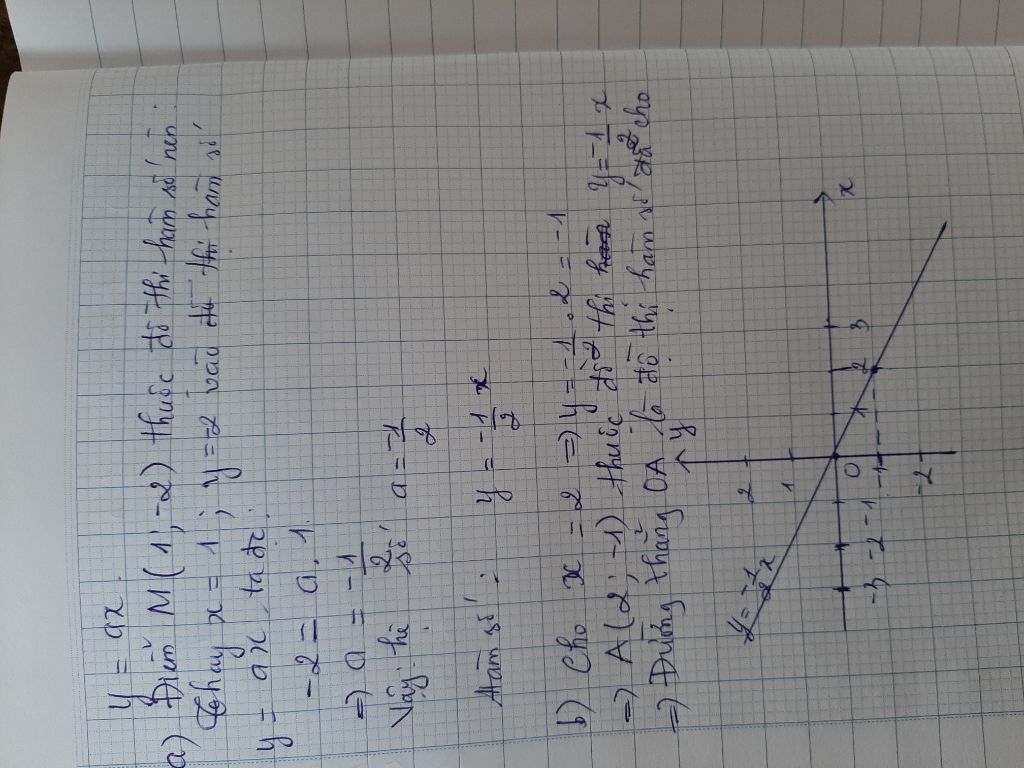 y = ax.
a) Điểm M (1; -2) thuộc đồ thị hàm số nên:
Thay x = 1; y = -2 vào đồ thị hàm số
y = ax, ta đc:
-2 = a. 1.
=> a = -1/2
Vậy: hệ số a = -1/2
Hàm số: y = -1/2 x
b) Cho x = 2 => y = -1/2 . 2 = -1
=> A (2; -1) thuộc đồ thị hàm y = -1/2 x
=> Đường thẳng OA là đồ thị hàm số đã cho
y
x
2
1
0
-3 -2 -1
1 2 3
-1
-2
y = -1/2 x